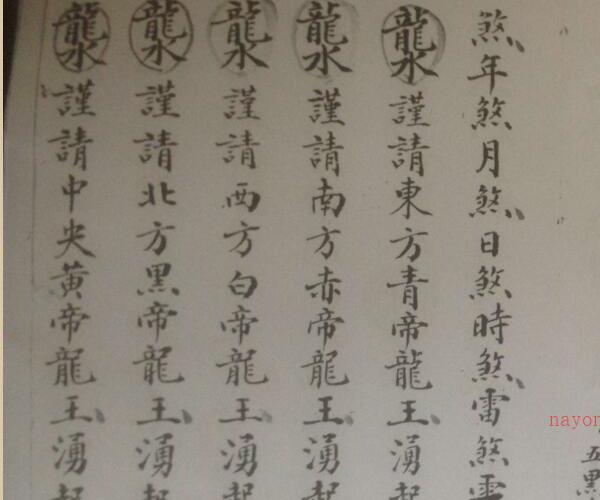 五黑
煞、年煞、月煞、日煞、時煞、雷煞、雷
龍水 謹請東方青帝龍王、湧起
龍水 謹請南方赤帝龍王、湧起
龍水 謹請西方白帝龍王、湧起
龍水 謹請北方黑帝龍王、湧起
龍水 謹請中央黃帝龍王、湧起
nayon